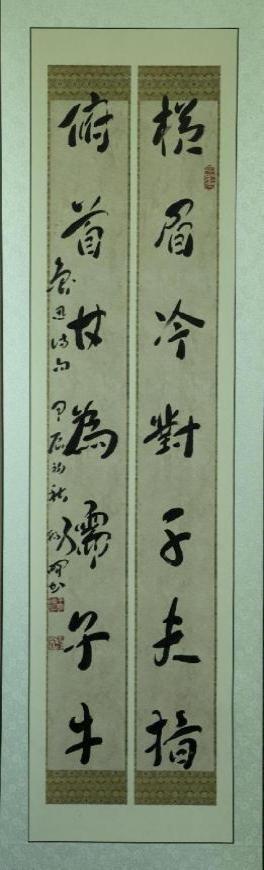 橫眉冷對千夫指
俯首甘為孺子牛
魯迅詩句 甲辰初秋 書